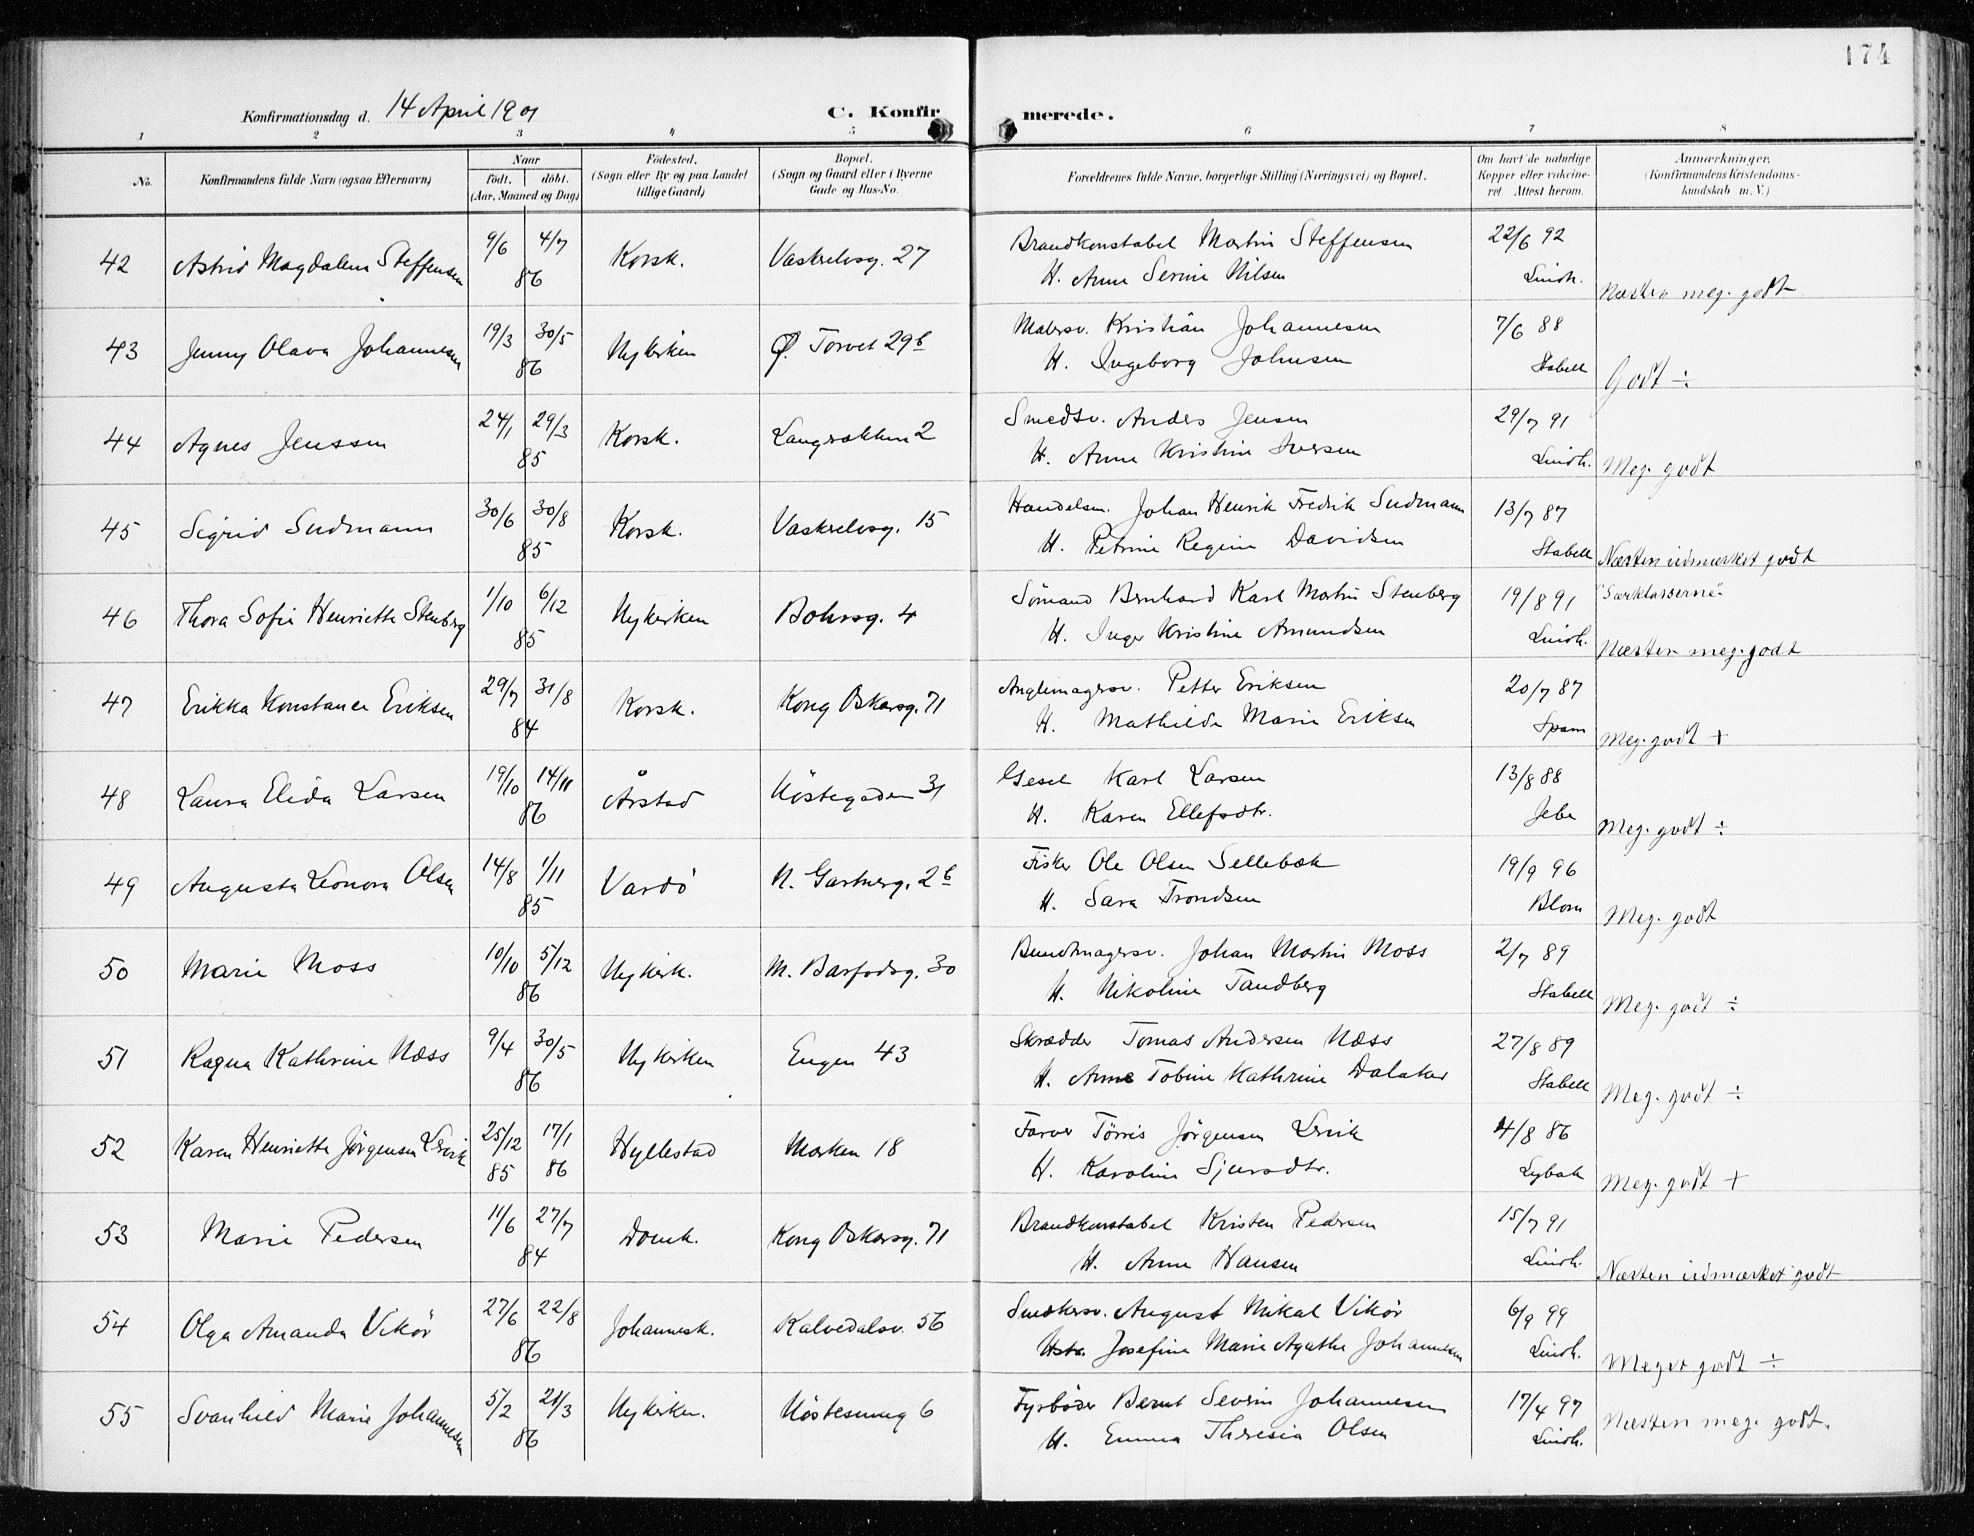 174
Konfirmationsdag d. 14 April 1901
C. Konfirmerede.
1 2 3 4 5 6 7 8
No.
Konfirmandens fulde Navn (ogsaa Efternavn)
Naar
født. døbt.
(Aar, Maaned og Dag)
Fødested.
(Sogn eller By og paa Landet
tillige Gaard)
Bopæl.
(Sogn og Gaard eller i Byerne
Gade og Hus-No.
Forældrenes fulde Navne, borgerlige Stilling (Næringsvei) og Bopæl.
Om havt de naturlige
Kopper eller vaksine-
ret Attest herom.
Anmærkninger,
(Konfirmandens Kristendoms-
kundskab m. V.)
42 Astrid Magdalena Steffensen 9/6 4/7 86 Korsk. Vaskrelvsg. 27 Brandkonstabel Martin Steffensen 22/6 92
H. Anne Serine Nilsen Lindh. Næsten meg. godt
43 Jenny Olava Johannesen 19/3 30/5 86 Nykirken Ø. Torvet 29b Malersv. Kristian Johannesen 7/6 88
H. Ingeborg Johnsen Stabell Godt ÷
44 Agnes Jenssen 24/1 29/3 85 Korsk. Langrækken 2 Smedsv. Anders Jensen 29/7 91
H. Anne Kristine Iversen Lindh. Meg. godt
45 Sigrid Sudmann 30/6 30/8 85 Korsk. Vaskrelvsg. 15 Handelsm. Johan Henrik Fredrik Sudmann 13/7 87
H. Petrine Regine Davidsen Stabell Næsten udmærket godt
46 Thora Sofie Henriette Stenberg 1/10 6/12 85 Nykirken Bohrsg. 4 Sømand Bernhard Karl Martin Stenberg 19/8 91 "Særklasserne"
H. Inger Kristine Amundsen Lindh. Næsten meg. godt
47 Erikka Konstance Eriksen 29/7 31/8 84 Korsk. Kong Oskarsg. 71 Petter Eriksen 20/7 87
H. Mathilde Marie Eriksen Spam Meg. godt +
48 Laura Elida Larsen 19/10 14/11 86 Årstad Nøstegaden 31 Gesel Karl Larsen 13/8 88
H. Karen Ellefsdtr. Jebe Meg. godt ÷
49 Augusta Leonora Olsen 14/8 1/11 85 Vardö N. Gartnerg. 2b Fisker Ole Olsen Sellebæk 19/9 96
H. Sara Trondsen Blom Meg. godt
50 Marie Moss 10/10 5/12 86 Nykirk. M. Barfodsg. 30 Bundtmagersv. Johan Martin Moss 2/7 89
H. Nikoline Tandberg Stabell Meg. godt ÷
51 Ragna Kathrine Næss 9/4 30/5 86 Nykirken Engen 43 Skrædder Tomas Andersen Næss 27/8 89
H. Anne Tobine Kathrine Dalaker Stabell Meg. godt ÷
52 Karen Henriette Jørgensen Lervik 25/12 85 17/1 86 Hyllestad Marken 18 Farver Tørris Jørgensen Lervik 4/8 86
H. Karoline Sjursdtr. Lybæk Meg. godt +
53 Marie Pedersen 11/6 27/7 84 Domk. Kong Oskarsg. 71 Brandkonstabel Kristen Pedersen 15/7 91
H. Anne Hansen Lindh. Næsten udmærket godt
54 Olga Amanda Vikör 27/6 22/8 86 Johannesk. Kalvedalsv. 56 Snedkersv. August Mikal Vikör 6/9 99
Hstr. Josefine Marie Agathe Johannesen Lindh. Meget godt ÷
55 Svanhild Marie Johannesen 5/2 21/3 86 Nykirken. Nøstesmug 6 Fyrbøder Bernt Severin Johannesen 17/4 97
H. Emma Theresia Olsen Lindh. Næsten meg. godt.